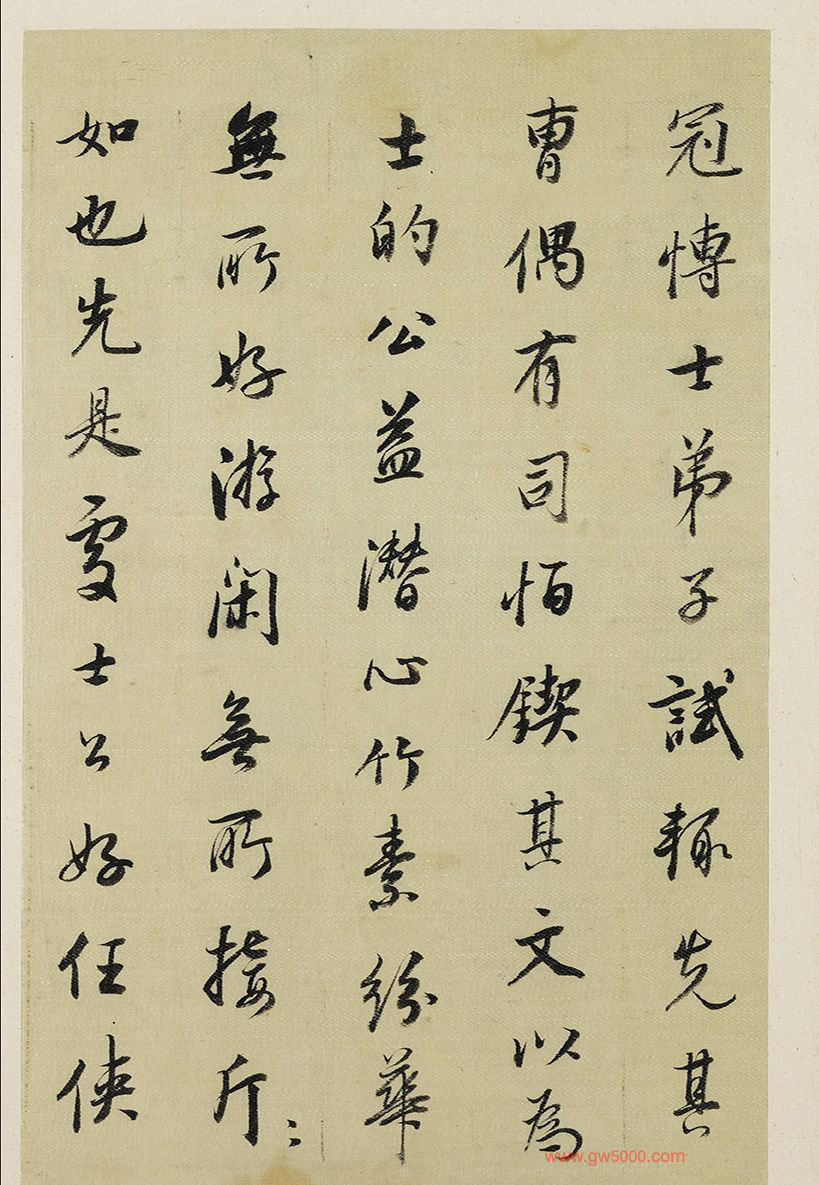 冠博士弟子試輙先其
曹偶有司恒鍥其文以為
士的公益潛心竹素紛華
無所好游閑無所接斤〻
如也先是處士公好任俠
www.gw5000.com